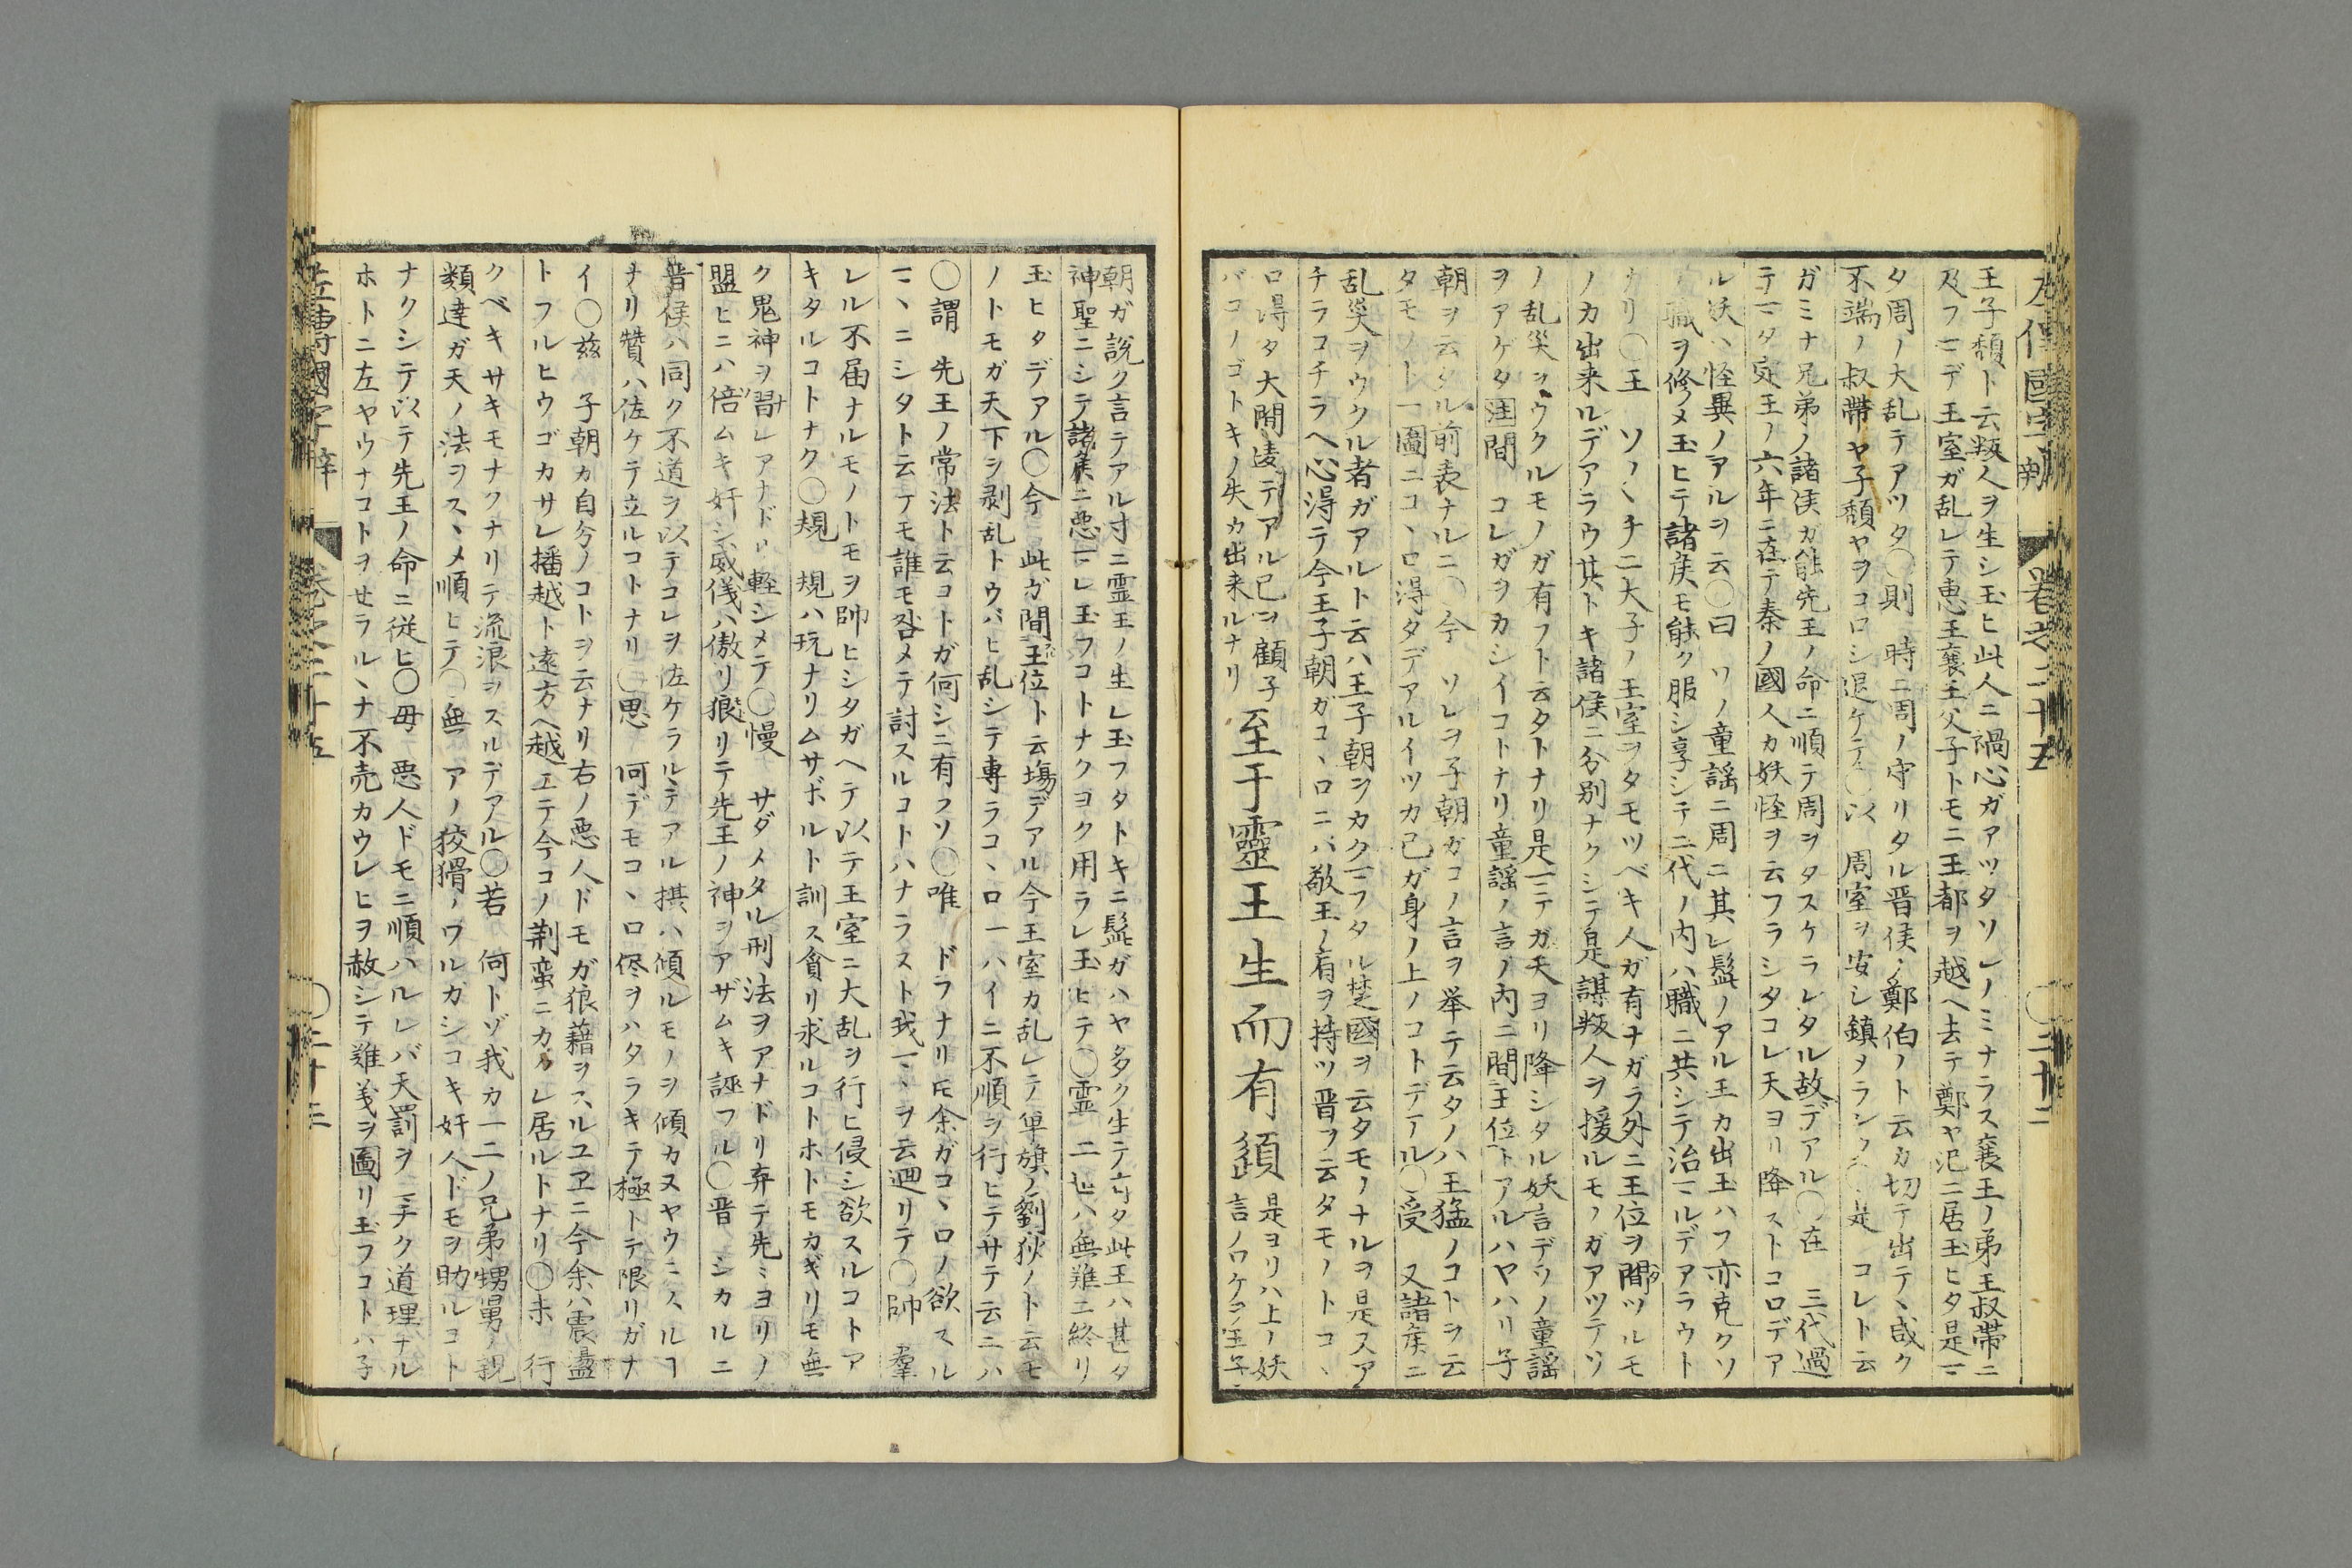 左傳國字辯 卷之二十五 〇三十二
王子頽ト云叛人ヲ生シ玉ヒ此人ニ禍心ガアツタソレノミナラス襄王ノ弟王叔帯ニ
及フマデ王室ガ乱レテ惠王襄王父子トモニ王都ヲ越ヘ去テ鄭ヤ氾ニ居玉ヒタ是マ
タ周ノ大乱テアツタ〇則 時ニ周ノ守リタル晋侯ノ鄭伯ノト云カ切テ出テ、咸ク
不端ノ叔帯ヤ子頽ヤヲコロシ退ケテ〇以 周室ヲ安シ鎮メラレタ〇是 コレト云
ガミナ兄弟ノ諸侯カ能先王ノ命ニ順テ周ヲタスケラレタル故デアル〇在 三代過
テマタ定王ノ六年ニ在テ秦ノ國人カ妖怪ヲ云フラシタコレ天ヨリ降 ストコロデア
ル妖ハ怪異ノアルヲ云〇曰 ソノ童謡ニ周ニ其レ髭ノアル王カ出玉ハフ亦克クソ
ノ職ヲ修メ玉ヒテ諸矦モ能ク服シ享シテ二代ノ内ハ職ニ共シテ治マルデアラウト
ナリ〇王 ソノ〱チニ大子ノ王室ヲタモツベキ人ガ有ナガラ外ニ王位ヲ間ツルモ
ノカ出来ルデアラウ其トキ諸侯ニ分別ナクシテ是謀叛人ヲ援ルモノガアツテソ
ノ乱災ヲウクルモノガ有フト云タトナリ是マテガ天ヨリ降シタル妖言デソノ童謡
ヲアゲタ 注間 コレガヲカシイコトナリ童謡ノ言ノ内ニ間王位トアルハヤハリ子
朝ヲ云タル前表ナルニ〇今 ソレヲ子朝ガコノ言ヲ挙テ云タノハ王猛ノコトヲ云
タモノト一圖ニコ、ロ得タデアルイツカ己ガ身ノ上ノコトデアル〇受 又諸矦ニ
乱災ヲウクル者ガアルト云ハ王子朝ヲカクマフタル楚國ヲ云タモノナルヲ是スア
チラコチラヘ心得テ今王子朝ガコ、ロニハ敬王ノ肩ヲ持ツ晋ヲ云タモノトコ、
ロ得タ大間違テアル已ヲ顧子
バコノゴトキノ失カ出来ルナリ
至于靈王生而有頾
是ヨリハ上ノ妖
言ノワケヲ王子
朝ガ説ク言テアル寸ニ霊王ノ生レ玉フタトキニ髭ガハヤ多ク生テ有タ此王ハ甚タ
神聖ニシテ諸矦ニ悪マレ玉フコトナクヨク用ラレ玉ヒテ〇霊 二世ハ無難ニ終リ
玉ヒタデアル〇今 此ガ間王位ト云塲デアル今王室カ乱レテ単旗ノ劉狄ノト云モ
ノトモガ天下ヲ剥乱トウバヒ乱シテ専ラコ、ロ一ハイニ不順ヲ行ヒテサテ云ニハ
〇謂 先王ノ常法ト云コトガ何シニ有フソ〇唯 ドラナリ𪜈余ガコ、ロノ欲スル
マ、ニシタト云テモ誰モ咎メテ討スルコトハナラスト我マ、ヲ云廻リテ〇帥 羣
レル不届ナルモノトモヲ帥ヒシタガヘテ以テ王室ニ大乱ヲ行ヒ侵シ欲スルコトア
キタルコトナク〇規 規ハ玩ナリムサボルト訓ス貪リ求ルコトホトモカギリモ無
ク鬼神ヲ習レアナドリ軽シメテ〇慢 サダメタル刑法ヲアナドリ弃テ先ミヨリノ
盟ヒニハ倍ムキ奸シ威儀ハ傲リ狠リテ先王ノ神ヲアザムキ誣フル〇晋 シカルニ
晋侯ハ同ク不道ヲ以テコレヲ佐ケラルテアル撗ハ傾ルモノヲ傾カヌヤウニスルヿ
ナリ賛ハ佐ケテ立ルコトナリ〇思 何デモコ、ロ侭ヲハタラキテ極トテ限リガナ
イ〇茲 子朝カ自分ノコトヲ云ナリ右ノ悪人ドモガ狼藉ヲスルユヱニ今余ハ震盪
トフルヒウゴカサレ播越ト遠方ヘ越エテ今コノ荆蛮ニカクレ居ルトナリ〇未 行
クベキサキモナクナリテ流浪ヲスルデアル〇若 何トゾ我カ一二ノ兄弟甥舅ノ親
類達ガ天ノ法ヲス、メ順ヒテ〇無 アノ狡猾ノワルガシコキ奸人ドモヲ助ルコト
ナクシテ以テ先王ノ命ニ従ヒ〇毋 悪人ドモニ順ハルレバ天罰ヲマチク道理ナル
ホトニ左ヤウナコトヲせラル、ナ不売カウレヒヲ赦シテ難義ヲ圖リ玉フコトハ子
左傳國字辯 卷之二十五 〇三十三